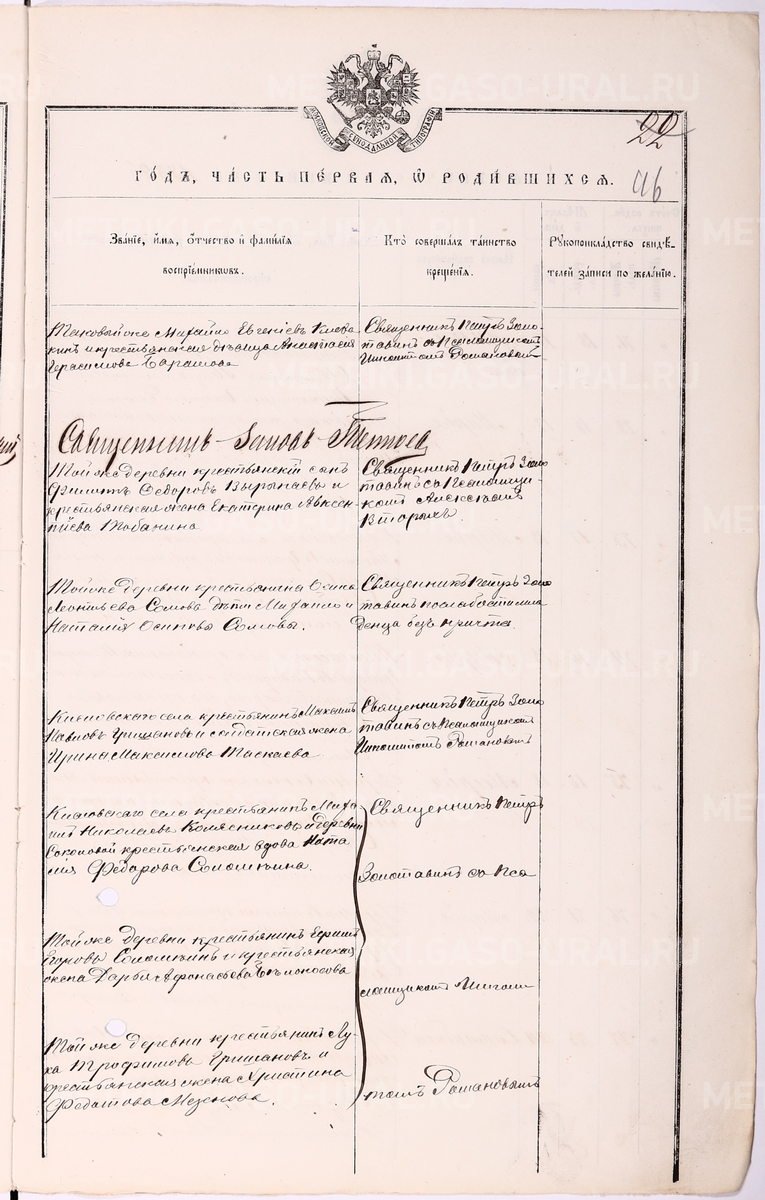 МОСКОВСКОЙ СѴНОДАЛЬНОЙ ТИПОГРАФІИ
22
46
ГОДЪ, ЧАСТЬ ПЕРВАЯ, Ѡ РОДИВШИХСЯ.
Званіе, имя, отчество и фамилія
воспріемниковъ.
Кто совершалъ таинство
крещенія.
Рукоприкладство свидѣ-
телей записи по желанію.
Таковыйже Михаилъ Евгеніевъ
кинъ и крестьянская дѣвица Анастасія
Герасимова Барашова
Священникъ Петръ Золо-
тавинъ съ Псаломщикомъ
Романовымъ
Священникъ
Той же деревни крестьянскій сынъ
Филиппъ Ѳедоровъ Вырыпаевъ и
крестьянская жена Екатерина Авксен-
тіева Табанина
Священникъ Петръ Золо
тавинъ съ Псаломщи-
комъ Алексѣемъ
Вторыхъ
Тойже деревни крестьянина Осипа
Леонтьева Сомова дѣти Михаилъ и
Наталія Осиповы Сомовы.
Священникъ Петръ Золо
тавинъ по слабости мла
денца безъ причта
Кисловскаго села крестьянинъ Михаилъ
Павловъ Гришановъ и солдатская жена
Ирина Максимова Таскаева
Священникъ Петръ Золо
тавинъ съ Псаломщикомъ
Романовымъ
Кисловскаго села крестьянинъ Миха
илъ Николаевъ Колясниковъ и деревни
Соколовой крестьянская вдова Ната
лія Ѳедорова Соломѣина.
Священникъ Петръ
Золотавинъ съ Пса
Той же деревни крестьянинъ Ефимъ
Егоровъ Соломѣинъ и крестьянская
жена Дарья Афонасьева Бѣлоносова
ломщикомъ
Той же деревни крестьянинъ Лу-
ка Трофимовъ Гришановъ и
крестьянская жена Христина
Федотова Мезенова.
томъ Романовымъ